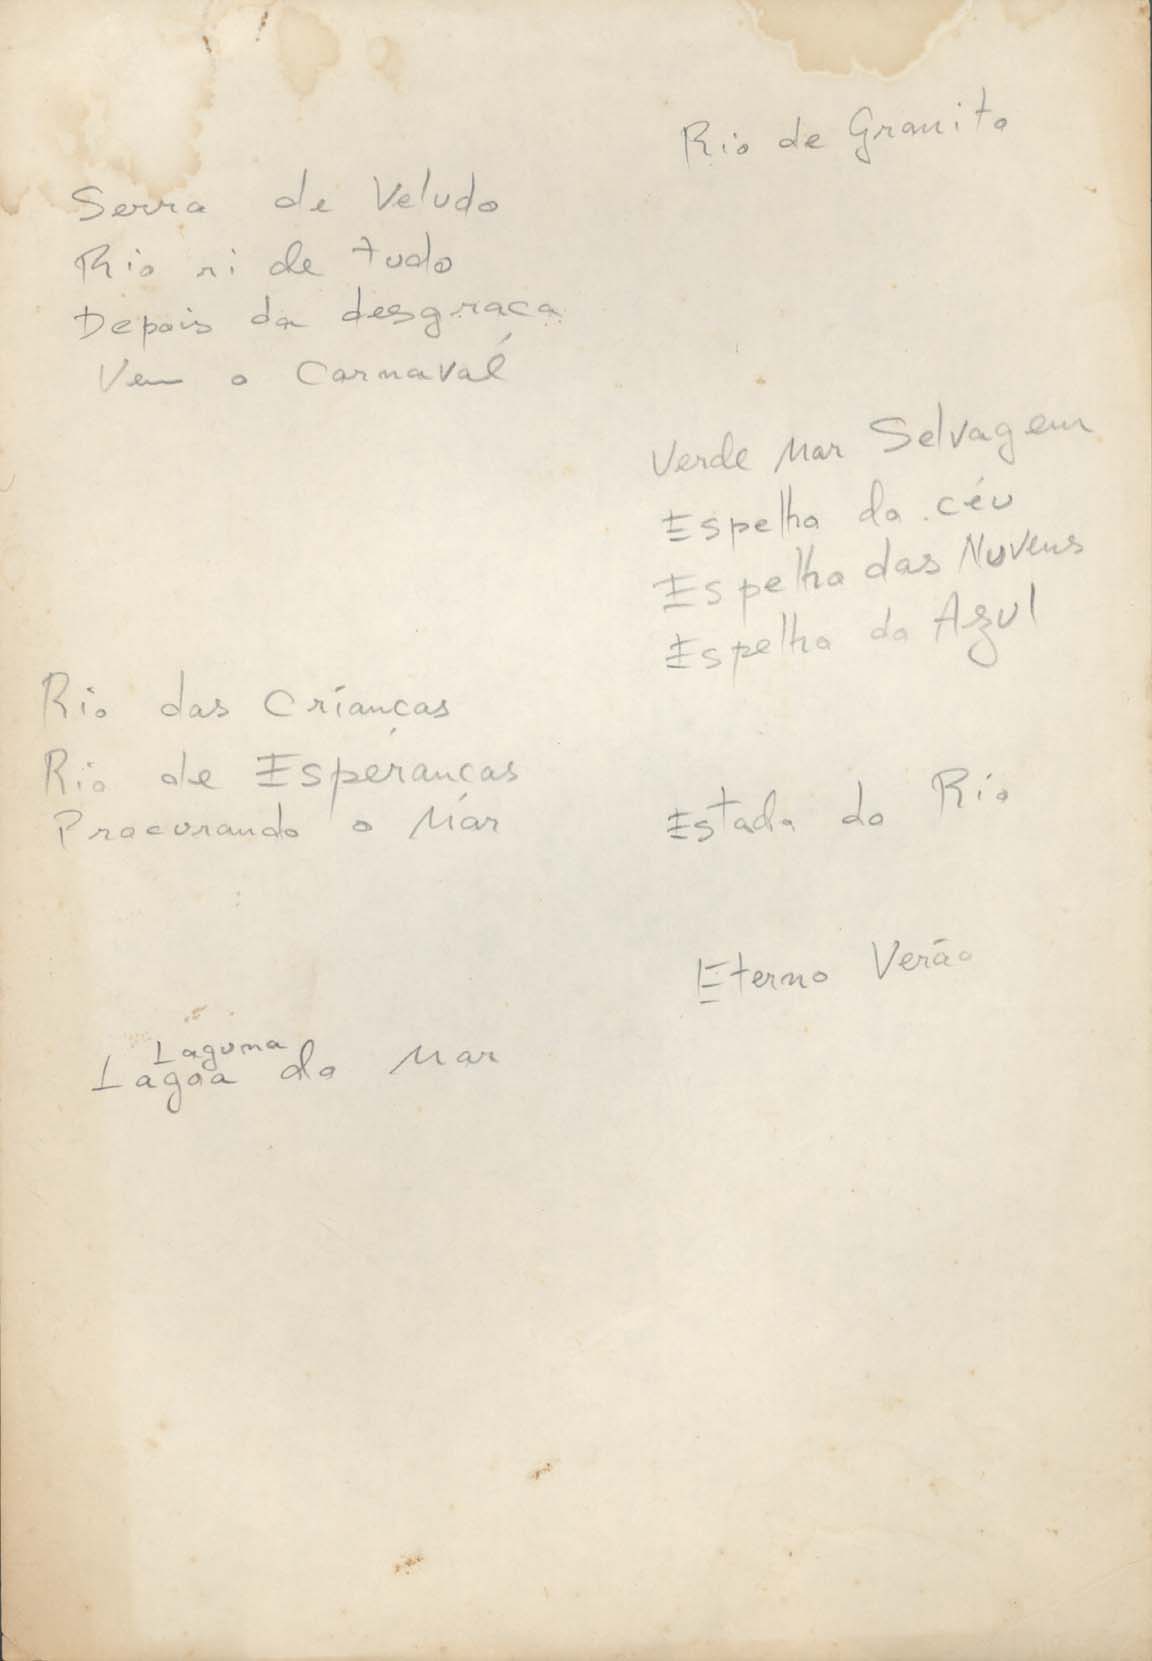 Rio de Granito
Serra de Veludo
Rio ri de tudo
Depois da desgraça
Vem o Carnaval
Verde Mar Selvagem
Espelho do céu
Espelho das Nuvens
Espelho do Azul
Rio das Crianças
Rio de Esperanças
Procurando o Mar
Estado do Rio
Eterno Verão
Laguna
Lagoa do Mar